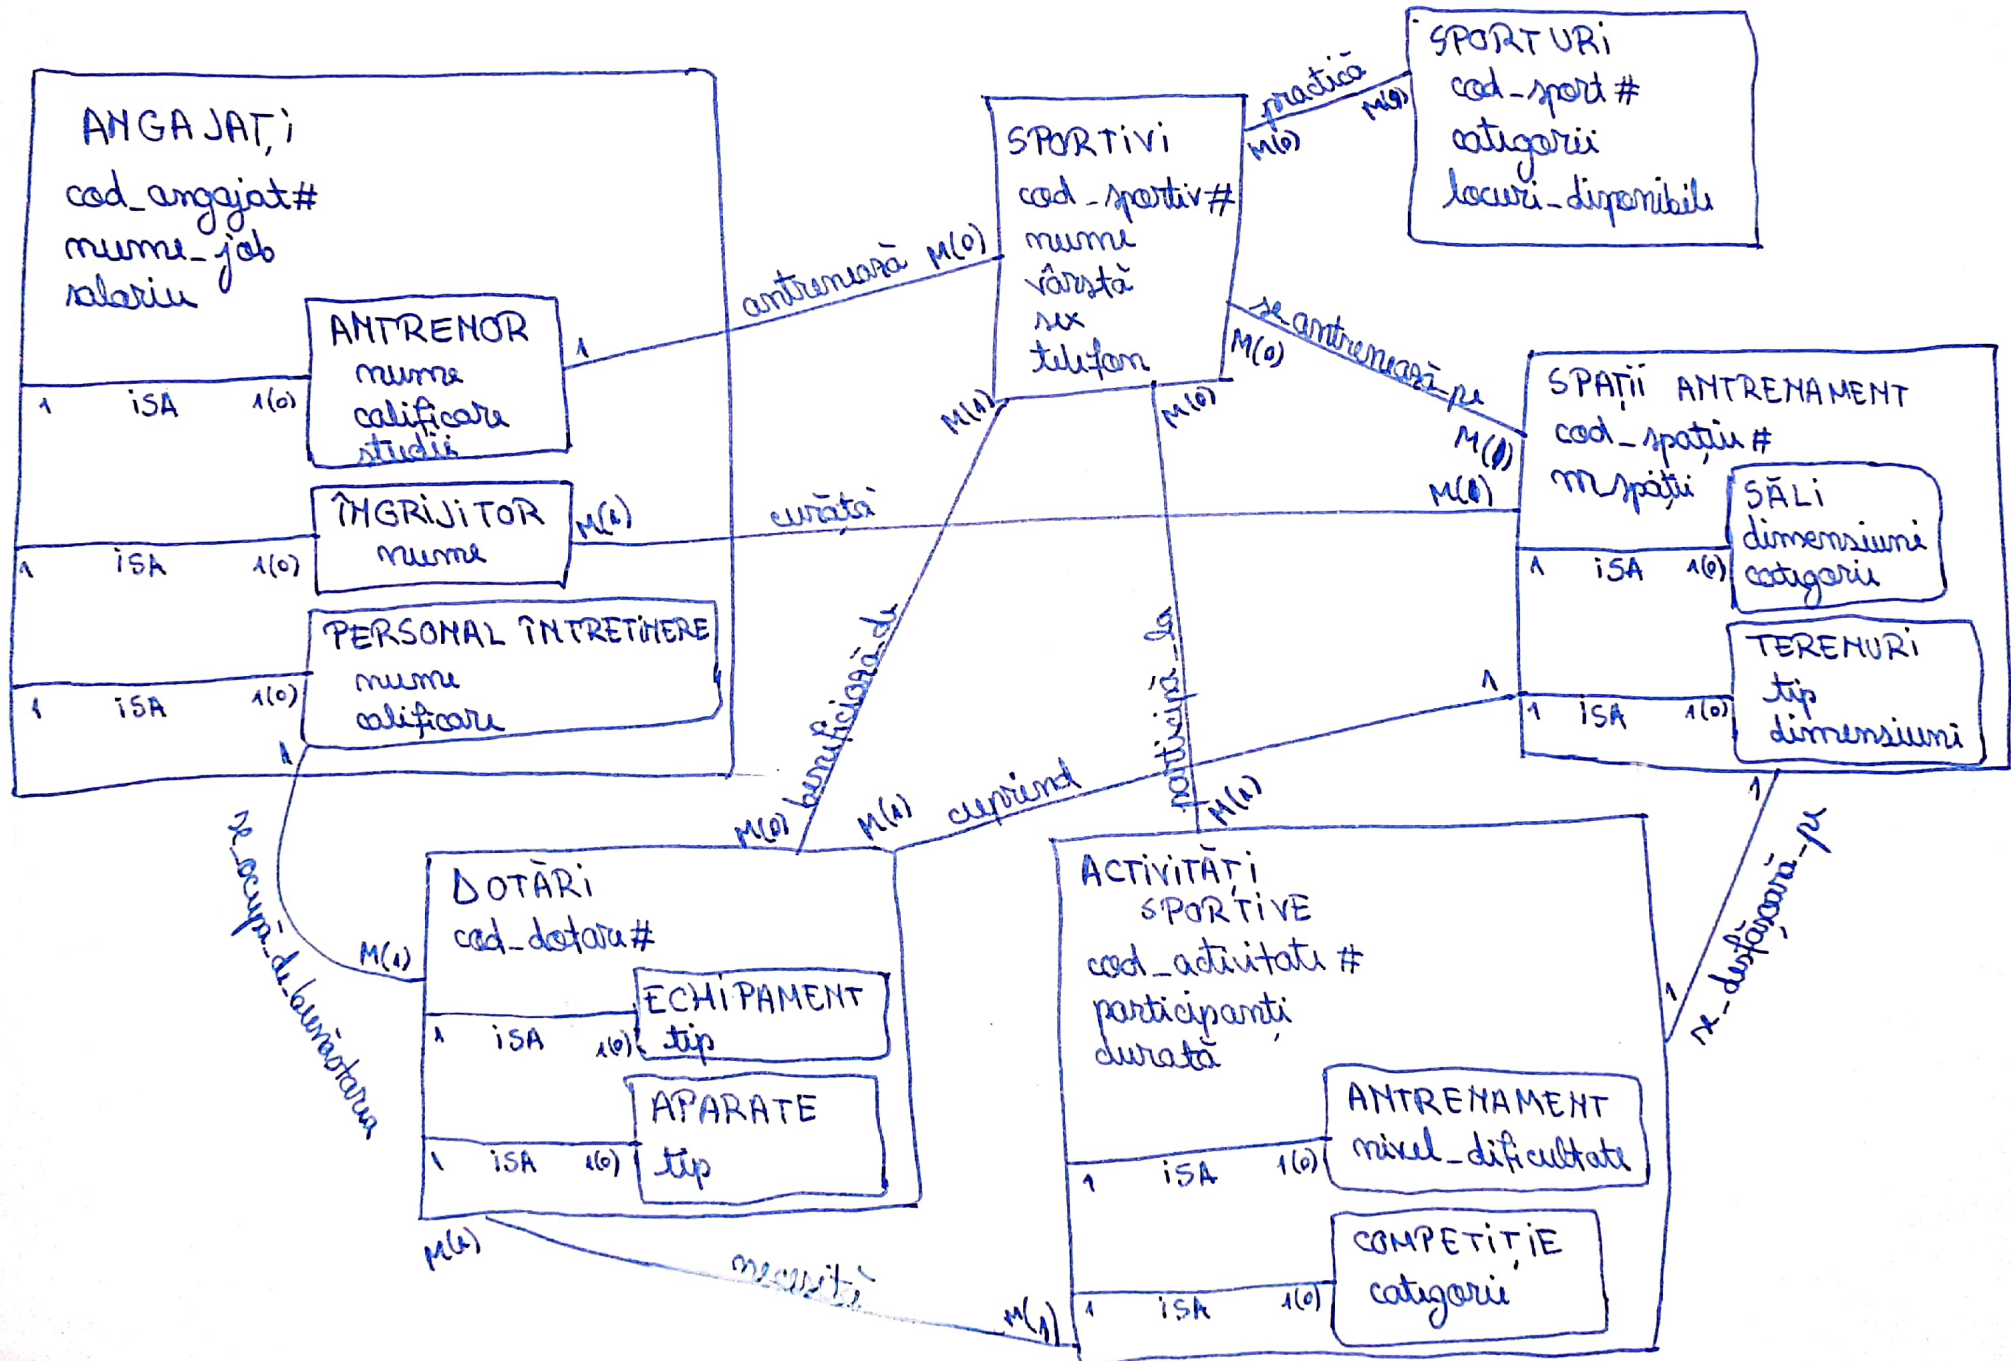 ANGAJAȚI
cod_angajat#
nume_job
salariu
ANTRENOR
nume
calificare
studii
1 iSA 1(0)
ÎNGRIJITOR
nume
1 iSA 1(0)
PERSONAL ÎNTREȚINERE
nume
calificare
1 iSA 1(0)
1 antrenează M(0)
SPORTIVI
cod_sportiv#
nume
vârstă
sex
telefon
practică
M(0)
SPORTURI
cod_sport#
categorii
locuri_disponibile
se_antrenează_pe
M(0)
SPAȚII ANTRENAMENT
cod_spațiu#
SĂLI
dimensiuni
categorie
1 iSA 1(0)
TERENURI
tip
dimensiuni
1 iSA 1(0)
M(1) curăță
M(1) beneficiază_de M(0)
M(0) participă_la M(1)
M(1) cuprind 1
1 se_ocupă_de_bunăstarea M(1)
DOTĂRI
cod_dotare#
ECHIPAMENT
tip
1 iSA 1(0)
APARATE
tip
1 iSA 1(0)
ACTIVITĂȚI
SPORTIVE
cod_activitate#
participanți
durată
ANTRENAMENT
nivel_dificultate
1 iSA 1(0)
COMPETIȚIE
categorie
1 iSA 1(0)
1 se_desfășoară_pe 1
M(1) necesită M(1)